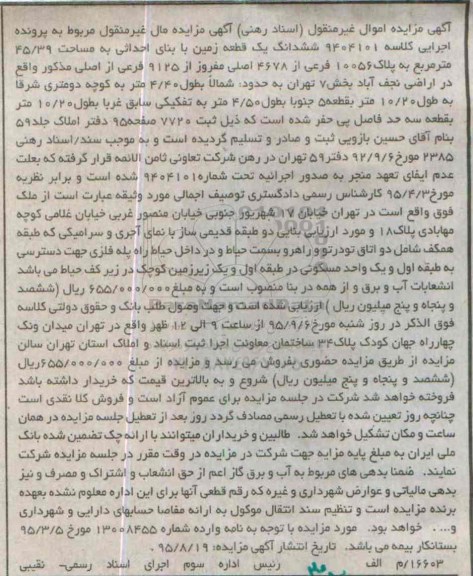 آگهی مزایده اموال غیرمنقول (اسناد رهنی) آگهی مزایده مال غیرمنقول مربوط به پرونده
اجرایی کلاسه ۹۴۰۴۱۰۱ ششدانگ یک قطعه زمین با بنای احداثی به مساحت ۴۵/۳۹
مترمربع به پلاک ۱۰۰۵۶ فرعی از ۴۶۷۸ اصلی مفروز از ۹۱۲۵ فرعی از اصلی مذکور واقع
در اراضی نجف آباد بخش۷ تهران به حدود: شمالا بطول۴/۴۰ متر به کوچه دومتری شرقا
به طول۱۰/۲۰ متر بقطعه۵ جنوبا بطول۴/۵۰ متر به تفکیکی سابق غربا بطول۱۰/۲۰ متر
بقطعه سه حد فاصل پی حفر شده است که ذیل ثبت ۷۷۲۰ صفحه۹۵ دفتر املاک جلد۵۹
بنام آقای حسین بازویی ثبت و صادر و تسلیم گردیده است و به موجب سند/اسناد رهنی
۲۳۸۵ مورخ۹۲/۹/۶ دفتر۵۹ تهران در رهن شرکت تعاونی ثامن الائمه قرار گرفته که بعلت
عدم ایفای تعهد منجر به صدور اجرائیه تحت شماره۹۴۰۴۱۰۱ شده است و برابر نظریه
مورخ۹۵/۴/۳ کارشناس رسمی دادگستری توصیف اجمالی مورد وثیقه عبارت است از ملک
فوق واقع است در تهران خیابان ۱۷ شهریور جنوبی خیابان منصور غربی خیابان غلامی کوچه
مهابادی پلاک۱۸ و مورد ارزیابی بنایی دو طبقه قدیمی ساز با نمای آجری و سرامیکی که طبقه
همکف شامل دو اتاق تودرتو و راهرو بسمت حیاط و در داخل حیاط راه پله فلزی جهت دسترسی
به طبقه اول و یک واحد مسکونی در طبقه اول و یک زیرزمین کوچک در زیر کف حیاط می باشد
انشعابات آب و برق و از همه در بنا منصوب است و به مبلغ۶۵۵/۰۰۰/۰۰۰ ریال (ششصد
و پنجاه و پنج میلیون ریال) ارزیابی شده است و جهت وصول طلب بانک و حقوق دولتی کلاسه
فوق الذکر در روز شنبه مورخ۹۵/۹/۶ از ساعت ۹ الی ۱۲ ظهر واقع در تهران میدان ونک
چهارراه جهان کودک پلاک۳۴ ساختمان معاونت اجرا ثبت اسناد و املاک استان تهران سالن
مزایده از طریق مزایده حضوری بفروش می رسد و مزایده از مبلغ ۶۵۵/۰۰۰/۰۰۰ریال
(ششصد و پنجاه و پنج میلیون ریال) شروع و به بالاترین قیمت که خریدار داشته باشد
فروخته خواهد شد شرکت در جلسه مزایده برای عموم آزاد است و فروش کلا نقدی است
چنانچه روز تعیین شده با تعطیل رسمی مصادف گردد روز بعد از تعطیل جلسه مزایده در همان
ساعت و مکان تشکیل خواهد شد. طالبین و خریداران میتوانند با ارائه چک تضمین شده بانک
ملی ایران به مبلغ پایه مزایه جهت شرکت در مزایده در وقت مقرر در جلسه مزایده شرکت
نمایند. ضمنا بدهی های مربوط به آب و برق گاز اعم از حق انشعاب و اشتراک و مصرف و نیز
بدهی مالیاتی و عوارض شهرداری و غیره که رقم قطعی آنها برای این اداره معلوم نشده بعهده
برنده مزایده است و تنظیم سند انتقال موکول به ارائه مفاصا حسابهای دارایی و شهرداری
و.... خواهد بود. مورد مزایده با توجه به نامه وارده شماره ۱۳۰۰۸۴۵۵ مورخ ۹۵/۳/۵
بستانکار بیمه می باشد. تاریخ انتشار آگهی مزایده: ۹۵/۸/۱۹.
۱۶۶۰۳/م الف رئیس اداره سوم اجرای اسناد رسمی- نقیبی